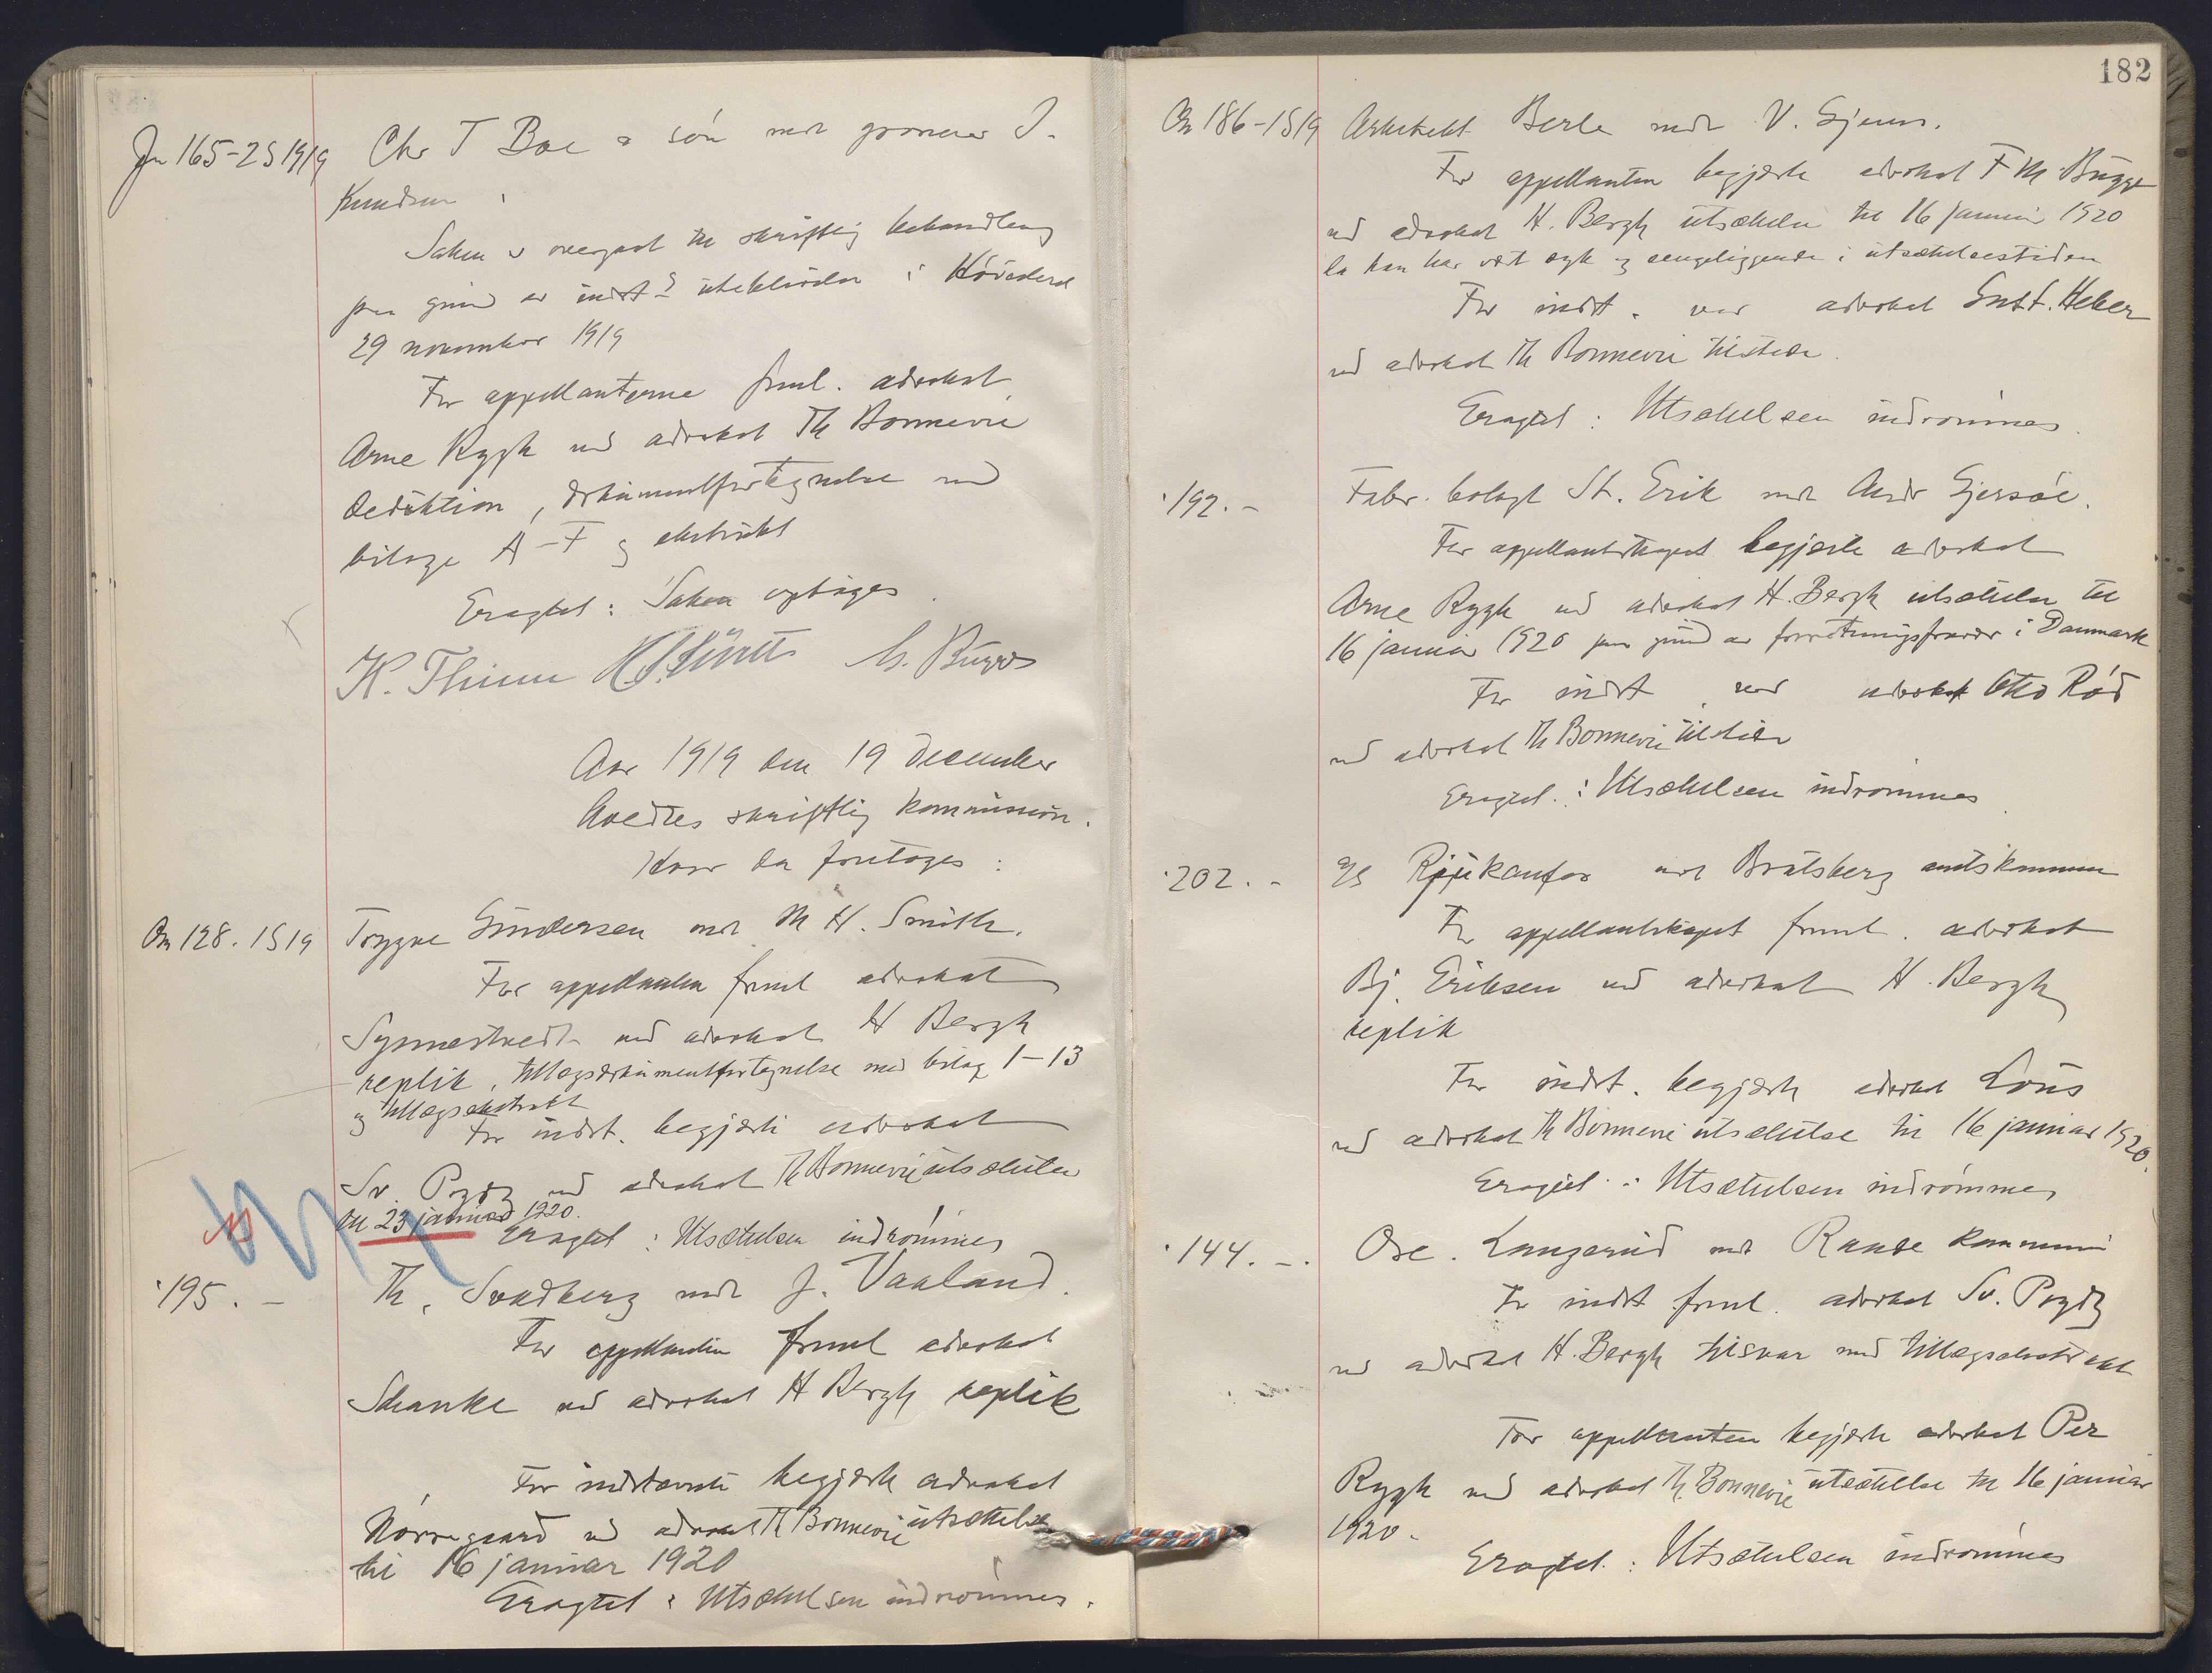 Jn 165-2S 1919 Chr T Boe & sön mot grosserer J.
Knudsen
Saken er overgaat til skriftlig behandling
paa grund av indst.s utebliven i Hövedsted
29 november 1919
For appellanterne freml. advokat
Arne Rygh ved advokat Th Bonnevie
deduktion, dokumentfortegnelse med
bilage A-F og ekstrakt
Eragtet: Saken optages.
K. Thinn
Aar 1919 den 19 december
holdtes skriftlig kommission.
Hvor da foretoges:
On 128. 1S19 Trygve Gundersen mot M H. Smith.
For appellanten freml advokat
Synnestvedt ved advokat H Bergh
replik, tillægsdokumentfortegnelse med bilag 1-13
og tillægsekstrakt
For indst. begjærte advokat
Sv. ved advokat Th Bonnevie utsættelse
til 23 januar 1920.
Eragtet: Utsættelsen indrömmes
195. - Th. Svadberg mot J. Vaaland.
For appellanten freml advokat
Schanke ved advokat H Bergh replik
For indstevnte begjærte advokat
Nörregaard ved advokat Th Bonnevie utsættelse
til 16 januar 1920
Eragtet: Utsættelsen indrömmes.
182
On 186-1S19 Arkitekt Berle mot V. Gjems.
For appellanten begjærte advokat F M Bugge
ved advokat H. Bergh utsættelse til 16 januar 1920
da han har vært syk og sengeliggende i utsættelsestiden
For indst. var advokat Gust. Heber
ved advokat Th Bonnevie tilstede.
Eragtet: Utsættelsen indrömmes.
192. - Fabr. bolaget St. Erik mot Andr Gjersöe.
For appellantskapet begjærte advokat
Arne Rygh ved advokat H. Bergh utsættelse til
16 januar 1920 paa grund av forretningsfravær i Danmark
For indst. var advokat Otto Röd
ved advokat Th Bonnevie tilstede
Eragtet: Utsættelsen indrömmes
202. - As Rjukanfos mot Bratsberg amtskommune
For appellantskapet freml. advokat
Bj. Eriksen ved advokat H. Bergh
replik
For indst. begjærte advokat Lous
ved advokat Th Bonnevie utsættelse til 16 januar 1920.
Eragtet: Utsættelsen indrömmes
144. -. Ose. Langerud mot Rande kommune
For indst freml. advokat Sv.
ved advokat H. Bergh tilsvar med tillægsekstrakt
For appellanten begjærte advokat Per
Rygh ved advokat Th. Bonnevie utsættelse til 16 januar
1920.
Eragtet: Utsættelsen indrömmes